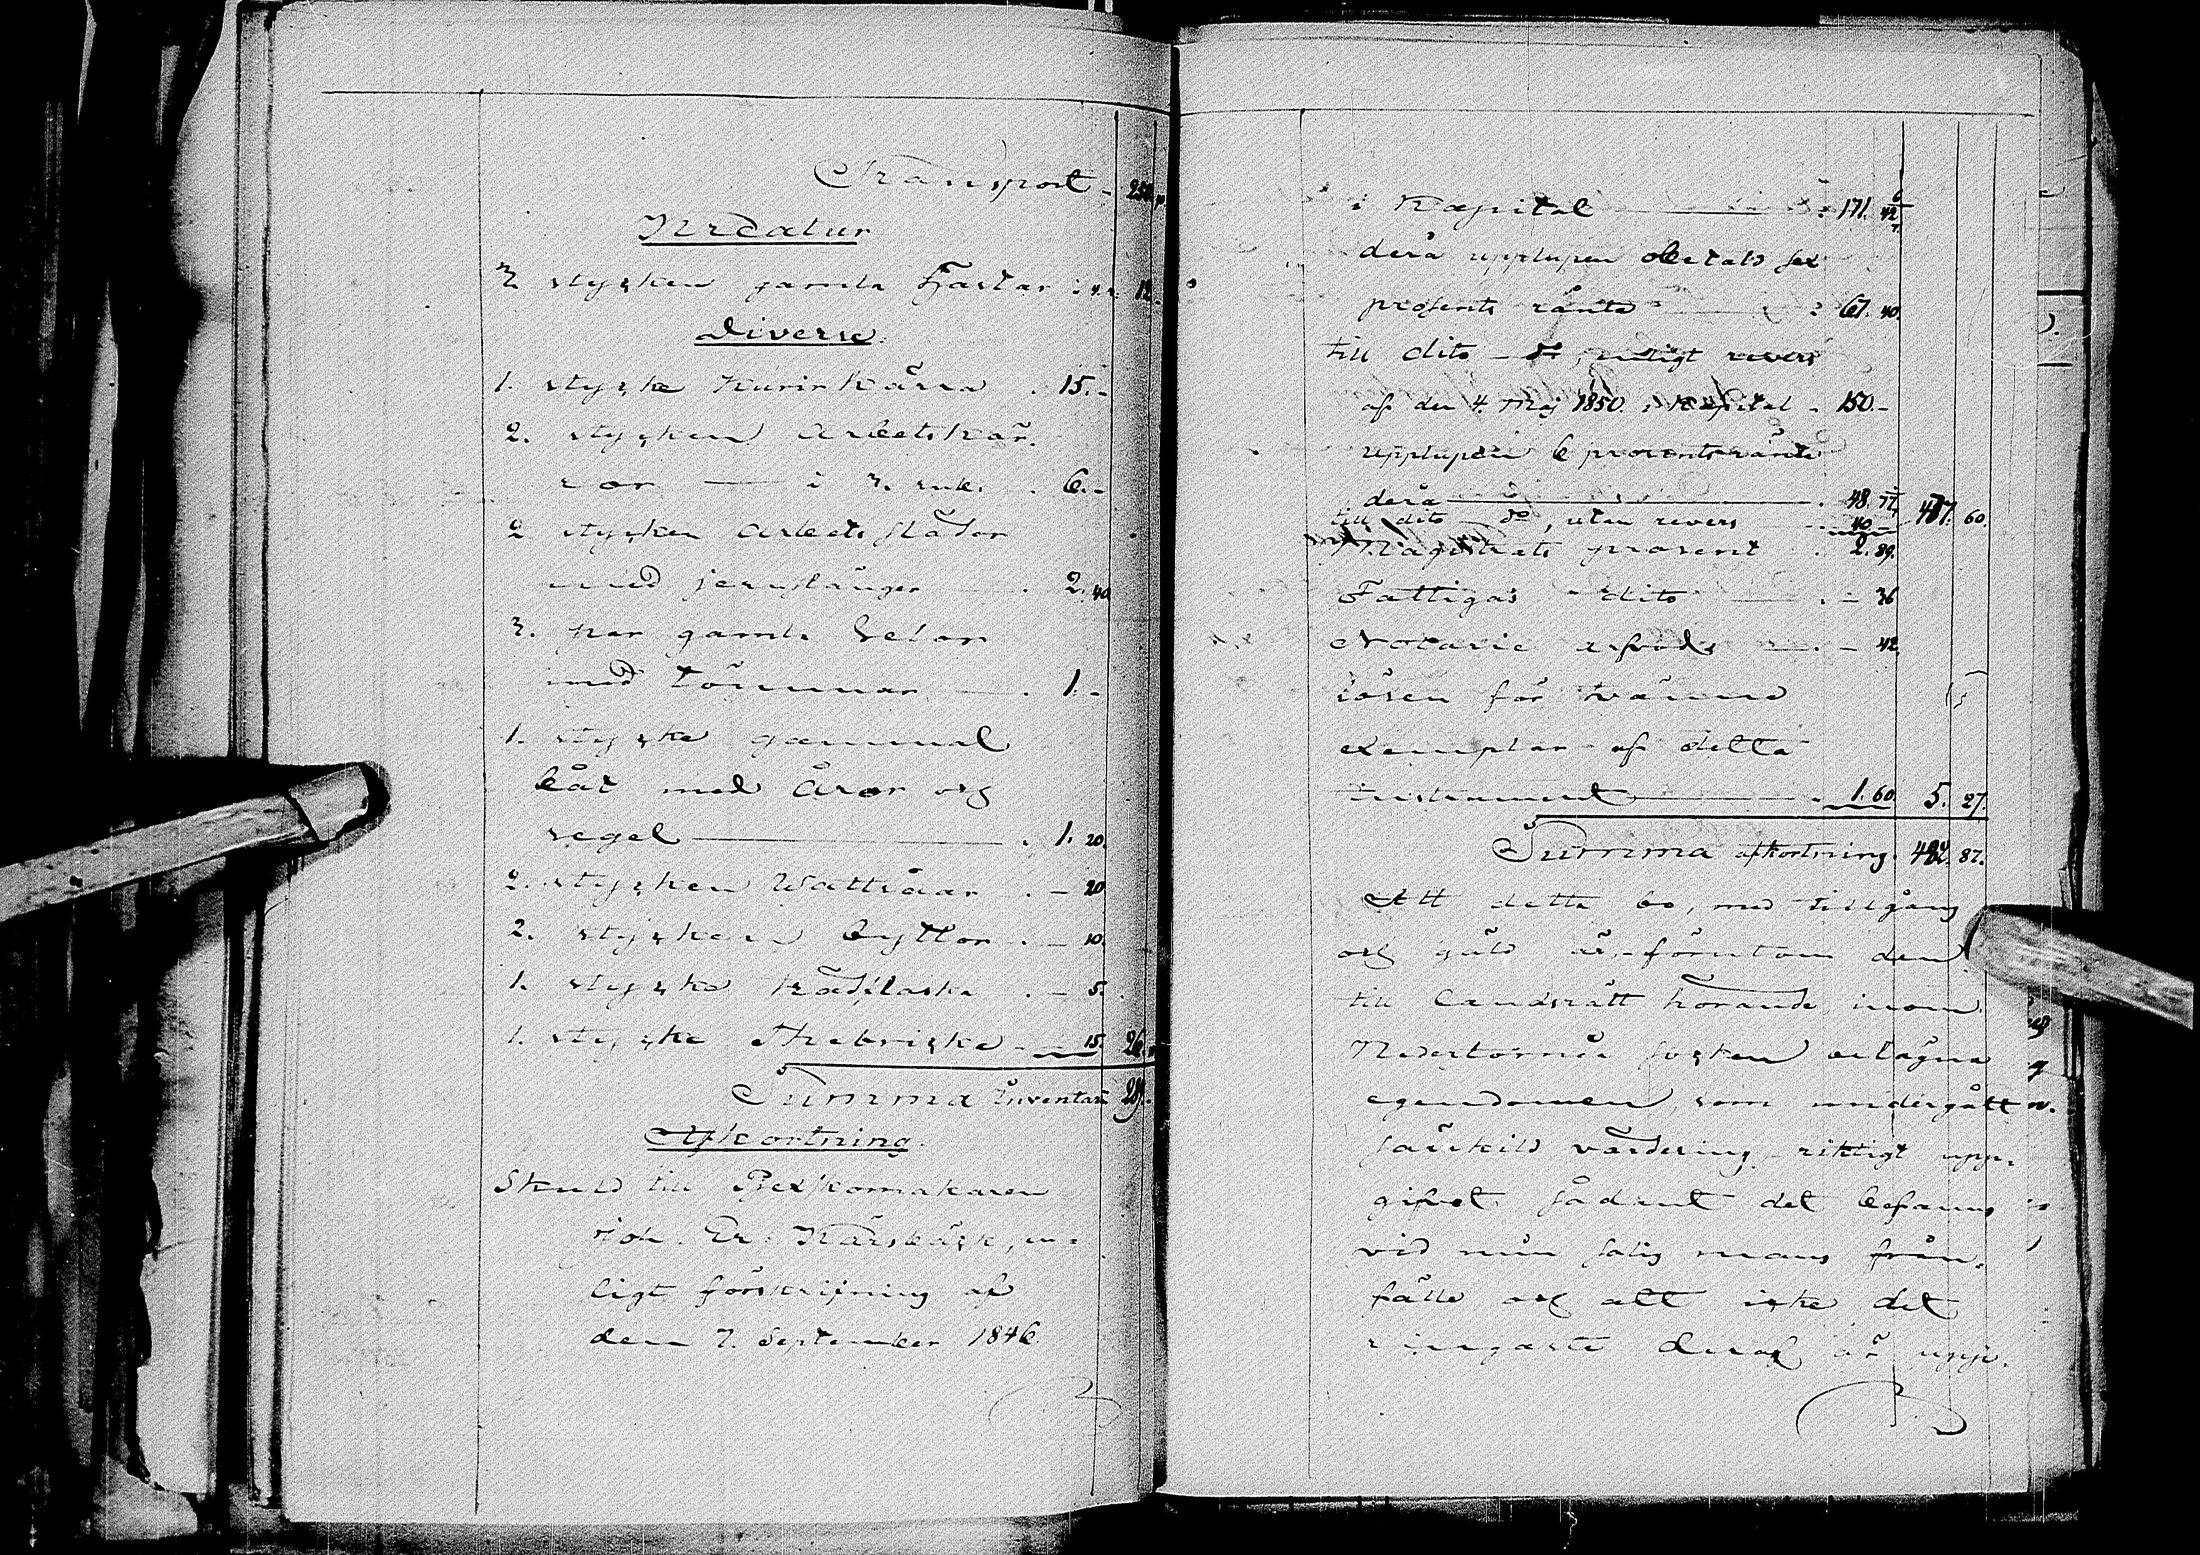 Transport - 250.
Kreatur
3 stycken gamla Hästar à 4 r. 12.-
Diverse.
1. stycke Kurirkärra . 15.-
2. stycken Arbetskär-
ror — à 3. rub. . 6.-
2 stycken Arbets slädor
med jernstänger — . 2. 40
3. par gamla Selar
med tömmar — . 1. -
1. stycke gammal
båt med åror och
segel — . 1. 20.
2. stycken Wattusåar . — 20
2. stycken byttor . — 10.
1. stycke trädflaska . — 5.
1. stycke Thebricka — 15. 26.
Summa Inventarii 289.-
Afkortning.
Skuld till Beckkomakaren
Joh. Er. Kärsbäck, en-
ligt förskrifning af
den 7. September 1846
i Kapital — : 171. 42 6/7
derå upplupen obetald sex
prosents ränta — : 67. 40.
till dito - do, enligt revers
af den 4. Maj 1850. i Kapital . 150.-
upplupen 6 procents ränta
derå — . 48. 77
till dito - do, utan revers — 40 — 477. 60.
Magistrats procent . 2. 89.
Fattigas dito — . — 36
Notarie arfvode — . — 42.
lösen för tvänne
exemplar af detta
instrument — . 1. 60. 5. 27
Summa afkortning. 482. 87.
Att detta bo, med tillgång
och gäld är, förutom den
till Landsrätt hörande, inom
Nedertorneå socken belägna
egendomen, som undergått
särskild värdering, riktigt upp-
gifvet sådant det befanns
vid min salig mans från-
fälle och att icke det
ringaste deraf är upp-